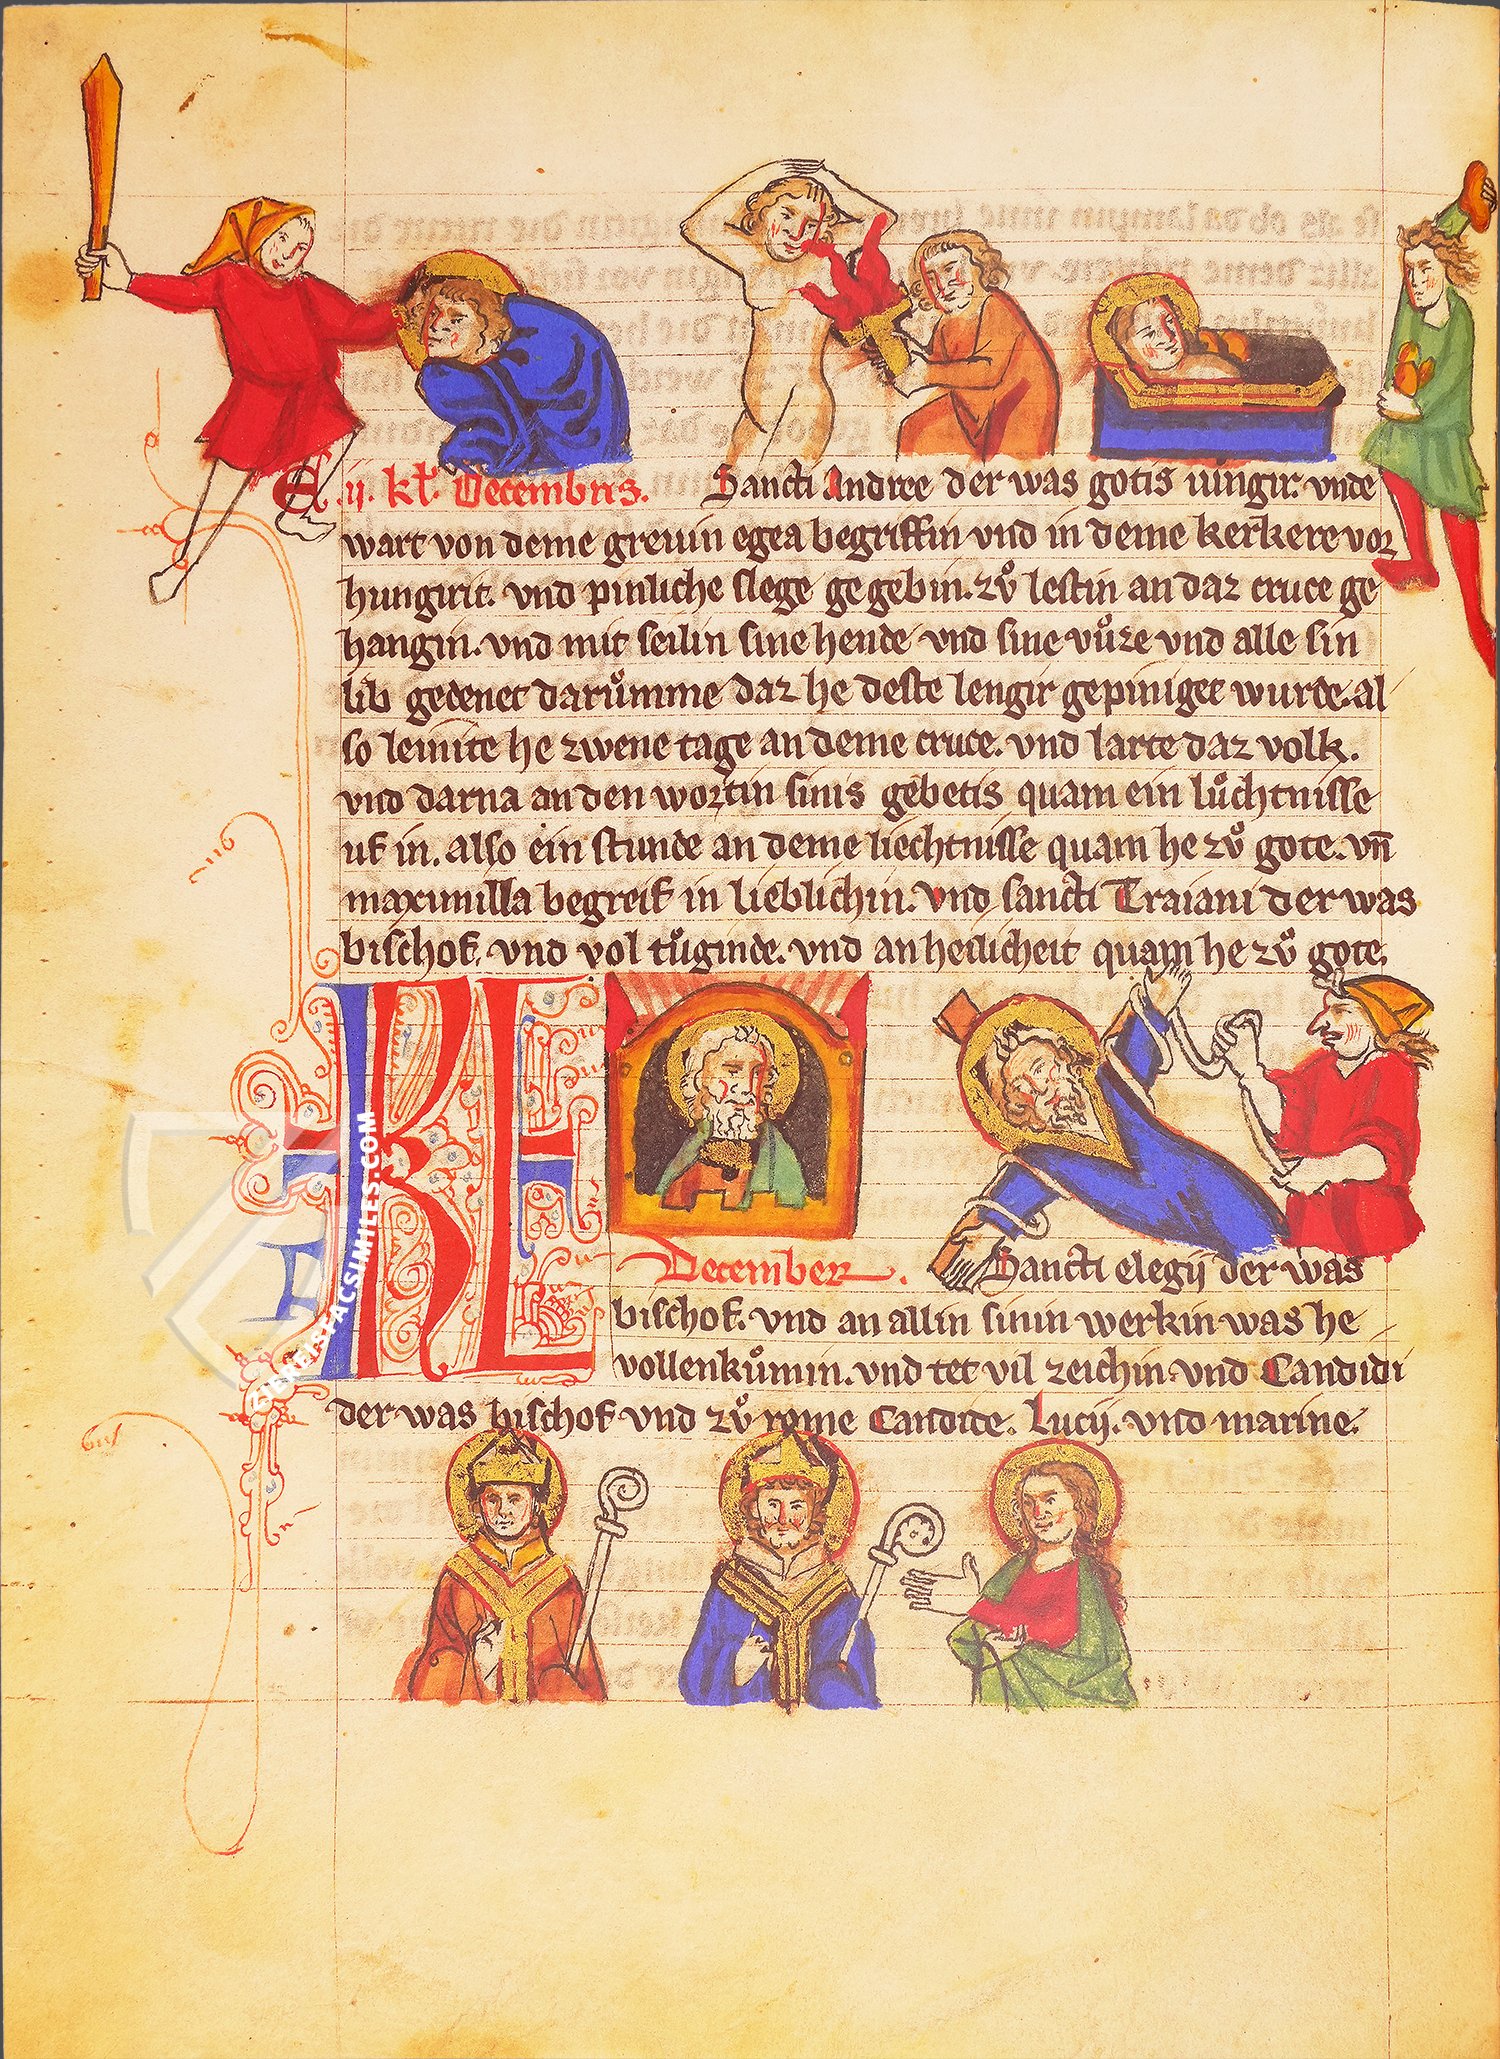 E .ij. kł. Decembris. Sancti Andree der was gotis iungir. vnde
wart von deme greuin egea begriffin vnd in deme kerkere vor
hungirit. vnd pinliche slege gegebin. zů lestin an daz cruce ge
hangin. vnd mit seilin sine hende vnd sine vůze vnd alle sin
lib gedenet darům̄me daz he deste lengir gepiniget wurde. al
so lenite he zwene tage an deme cruce. vnd larte daz volk.
vnd darna an den wortin sinis gebetis quam ein lůchtnisse
uf in. also ein stunde an deme liechtnisse quam he zů gote. vn̄
maximilla begreif in lieblichin. vnd sancti Traiani der was
bischof. vnd vol tůginde. vnd an heilicheit quam he zů gote.
KL
December. Sancti elegij der was
bischof. vnd an allin sinin werkin was he
vollenkůmin. vnd tet vil zeichin. vnd Candidi
der was bischof vnd zů rome Candide. Lucij. vnd marine.
ZIEREIS FACSIMILES.COM